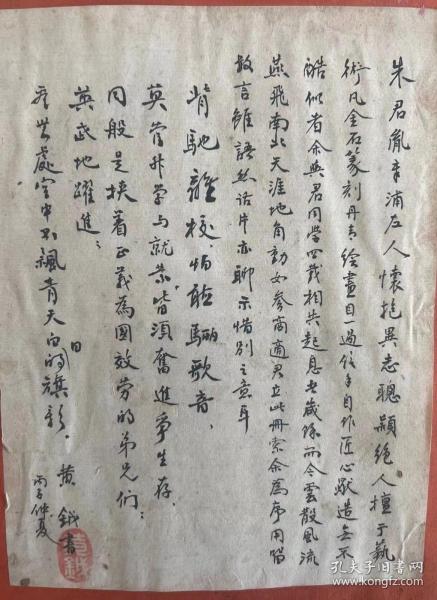 朱君胤青浦左人懷抱異志聰穎絕人擅于藝
術凡金石篆刻丹青繪畫目一過信手自作匠心獸造無不
酷似者余與君同學四載相共起息者歲餘而今雲散風流
燕飛南北天涯地角動如參商商君立此冊索余為序用留
數言雖語絲話片亦聊示惜別之意耳
背馳離校怕聽驪歌音、
莫管升學与就業、皆須奮進爭生存、
同般是挾着正義為國效勞的弟兄們：
英武地躍進；
看此處空中飄青天白日的旗影。
黃鉞書
丙子仲夏
孔夫子旧书网
www.kongfz.com